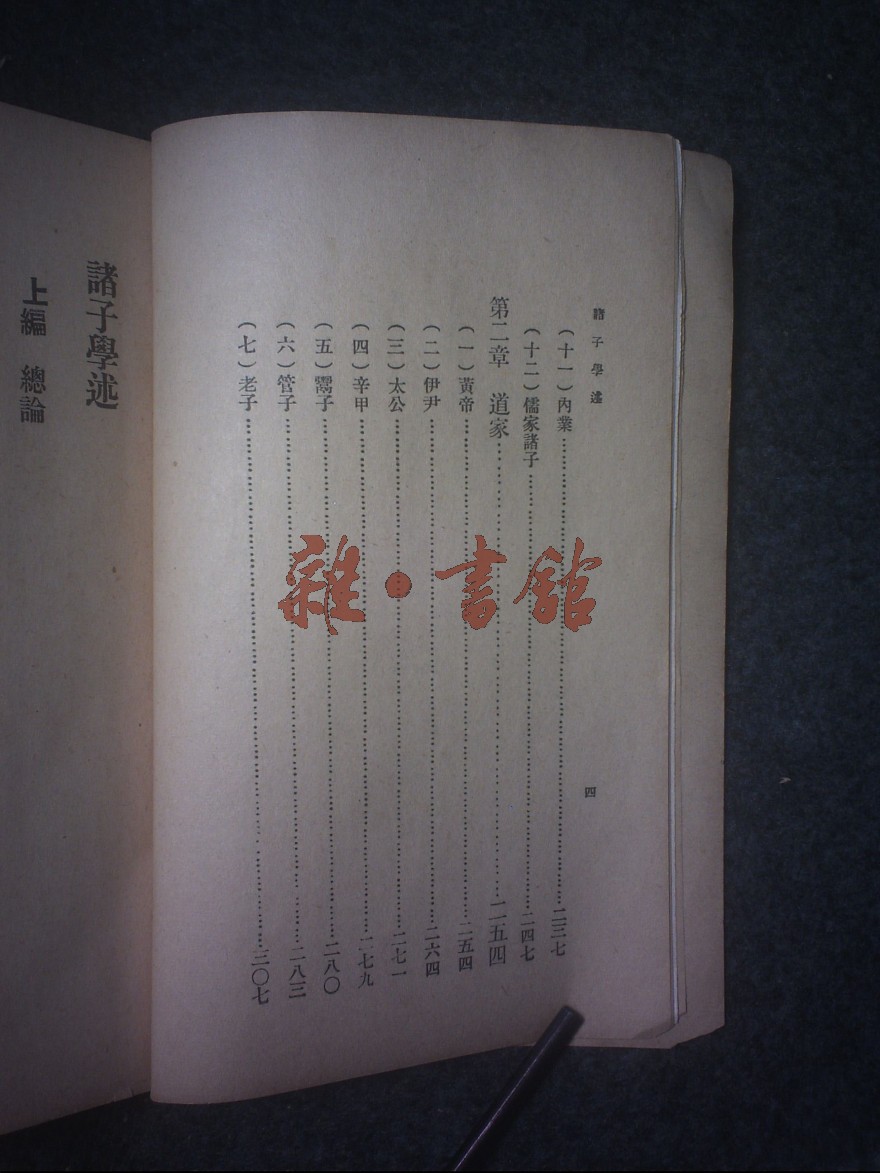 諸子學述
四
(十一)內業……二三七
(十二)儒家諸子……二四七
第二章 道家……二五四
(一)黃帝……二五四
(二)伊尹……二六四
(三)太公……二七一
(四)辛甲……二七九
(五)鬻子……二八〇
(六)管子……二八三
(七)老子……三〇七
諸子學述
上編 總論
雜·書館